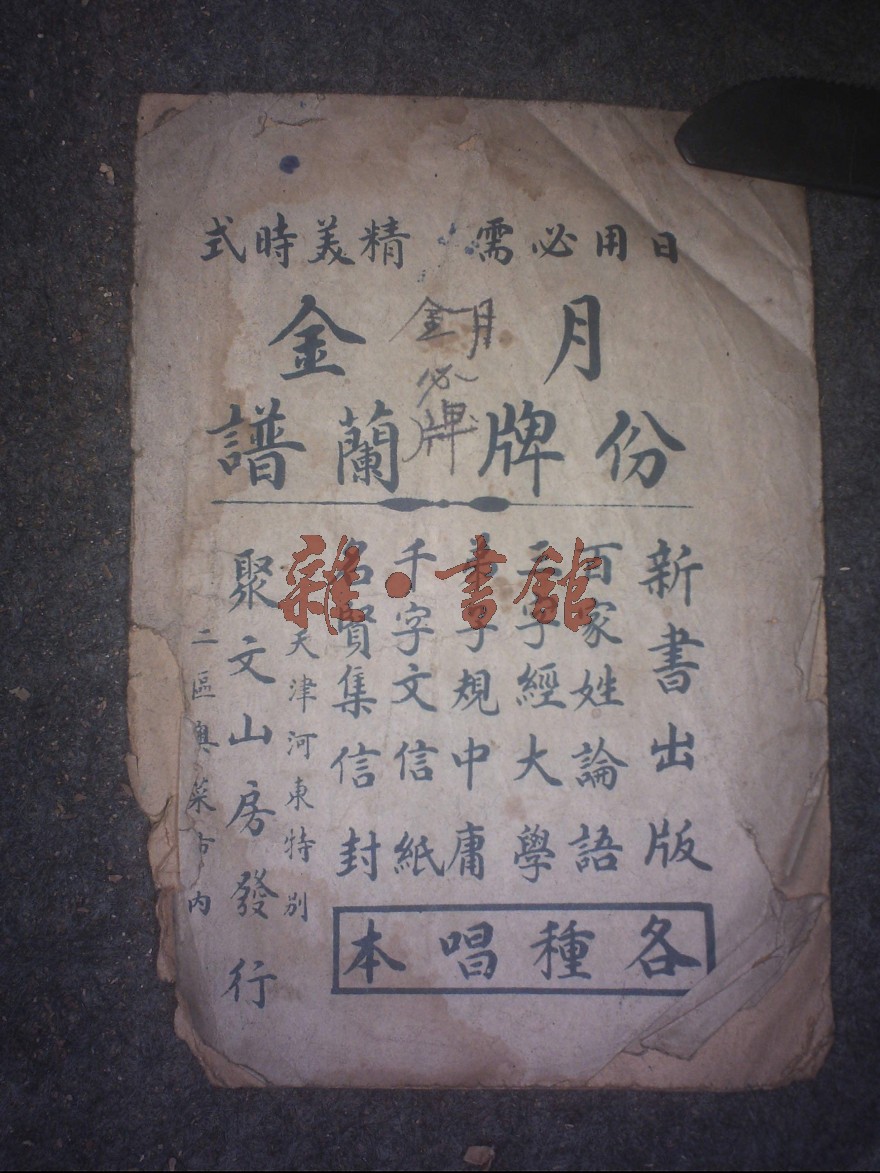 日用必需 精美時式
月 金
份牌 蘭譜
金月
必
牌
新書出版
百家姓 論語
三字經 大學
弟子規 中庸
千字文 信紙
名賢集 信封
各種唱本
天津河東特別
聚文山房發行
二區奧菜市內
雜·書館